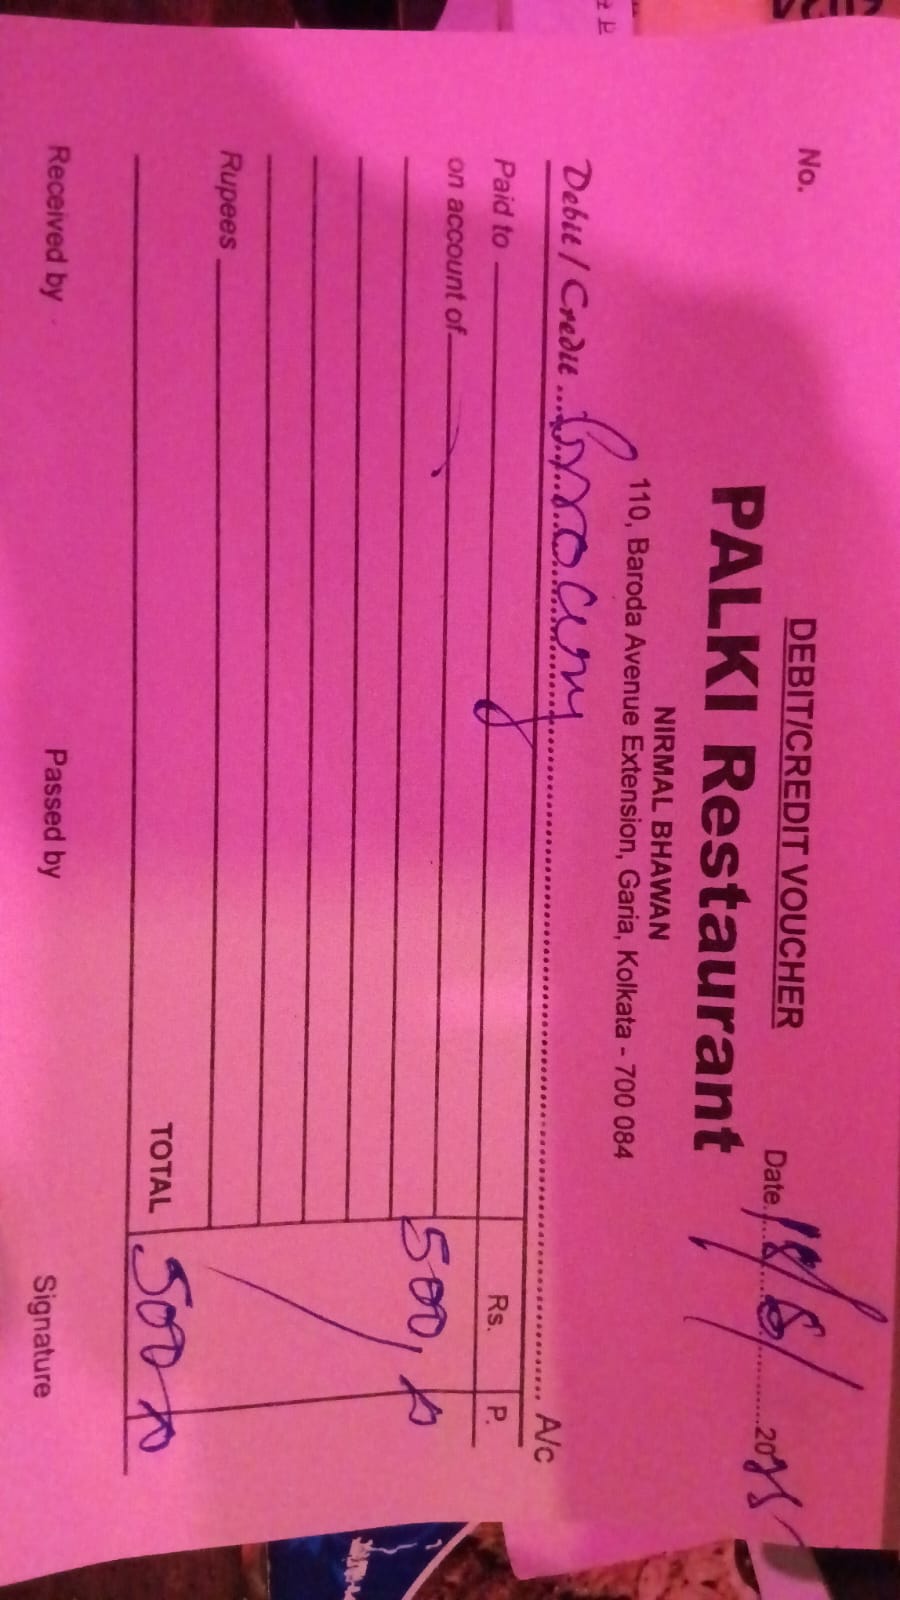 DEBIT/CREDIT VOUCHER
No. Date 18/8/2025
PALKI Restaurant
NIRMAL BHAWAN
110, Baroda Avenue Extension, Garia, Kolkata - 700 084
Debit / Credit Grocery A/c
Paid to Rs. P.
on account of 500,
Rupees
TOTAL 500
Received by Passed by Signature